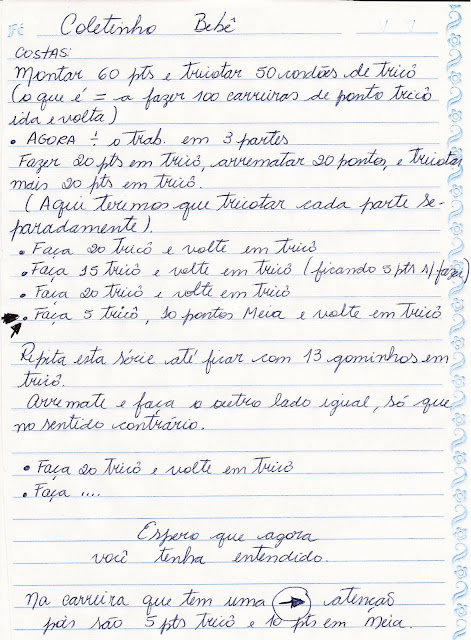 Coletinho Bebê
COSTAS:
Montar 60 pts e tricotar 50 cordões de tricô
(o que é = a fazer 100 carreiras de ponto tricô
ida e volta)
• AGORA ÷ o trab. em 3 partes
Fazer 20 pts em tricô, arrematar 20 pontos, e tricotar
mais 20 pts em tricô.
(Aqui teremos que tricotar cada parte se-
paradamente).
• Faça 20 tricô e volte em tricô
• Faça 15 tricô e volte em tricô (ficando 5 pts s/ fazer)
• Faça 20 tricô e volte em tricô
→ • Faça 5 tricô, 10 pontos Meia e volte em tricô
Repita esta série até ficar com 13 gominhos em
tricô.
Arremate e faça o outro lado igual, só que
no sentido contrário.
• Faça 20 tricô e volte em tricô
• Faça ....
Espero que agora
você tenha entendido.
Na carreira que tem uma → atenção
pois são 5 pts tricô e 10 pts em Meia.